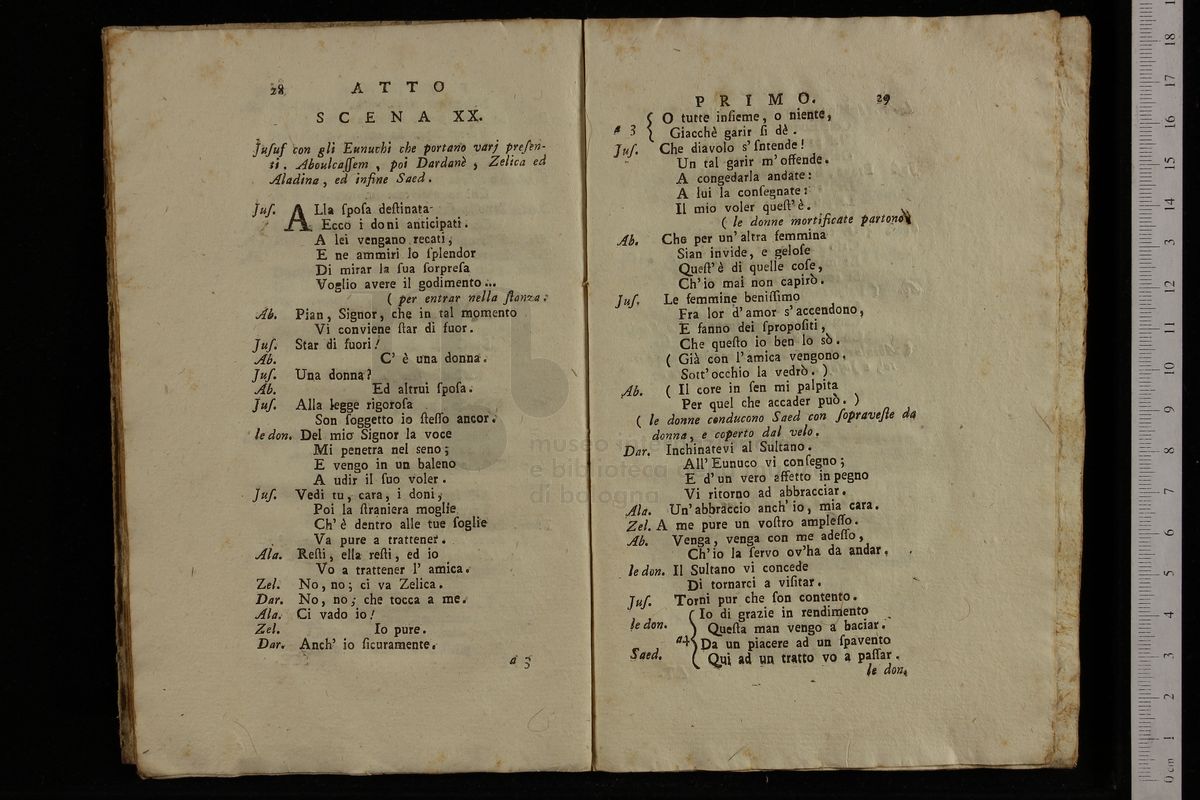 28 ATTO
SCENA XX.
Jusuf con gli Eunuchi che portano varj presen-
ti. Aboulcassem, poi Dardanè, Zelica ed
Aladina, ed infine Saed.
Jus. ALla sposa destinata
Ecco i doni anticipati.
A lei vengano recati,
E ne ammiri lo splendor
Di mirar la sua sorpresa
Voglio avere il godimento...
( per entrar nella stanza.
Ab. Pian, Signor, che in tal momento
Vi conviene star di fuor.
Jus. Star di fuori!
Ab. C' è una donna.
Jus. Una donna?
Ab. Ed altrui sposa.
Jus. Alla legge rigorosa
Son soggetto io stesso ancor.
le don. Del mio Signor la voce
Mi penetra nel seno;
E vengo in un baleno
A udir il suo voler.
Jus. Vedi tu, cara, i doni,
Poi la straniera moglie
Ch' è dentro alle tue soglie
Va pure a trattener.
Ala. Resti, ella resti, ed io
Vo a trattener l' amica.
Zel. No, no; ci va Zelica.
Dar. No, no; che tocca a me.
Ala. Ci vado io!
Zel. Io pure.
Dar. Anch' io sicuramente.
a 3
PRIMO. 29
a 3 { O tutte insieme, o niente,
Giacchè garir si dè.
Jus. Che diavolo s' intende!
Un tal garir m' offende.
A congedarla andate:
A lui la consegnate:
Il mio voler quest' è.
( le donne mortificate partono.
Ab. Che per un' altra femmina
Sian invide, e gelose
Quest' è di quelle cose,
Ch' io mai non capirò.
Jus. Le femmine benissimo
Fra lor d' amor s' accendono,
E fanno dei spropositi,
Che questo io ben lo sò.
( Già con l' amica vengono,
Sott' occhio la vedrò. )
Ab. ( Il core in sen mi palpita
Per quel che accader può. )
( le donne conducono Saed con sopraveste da
donna, e coperto dal velo.
Dar. Inchinatevi al Sultano.
All' Eunuco vi consegno;
E d' un vero affetto in pegno
Vi ritorno ad abbracciar.
Ala. Un' abbraccio anch' io, mia cara.
Zel. A me pure un vostro amplesso.
Ab. Venga, venga con me adesso,
Ch' io la servo ov' ha da andar.
le don. Il Sultano vi concede
Di tornarci a visitar.
Jus. Torni pur che son contento.
le don. { Io di grazie in rendimento
Questa man vengo a baciar.
a4
Saed. { Da un piacere ad un spavento
Qui ad un tratto vo a passar.
le don.
museo
e biblioteca
di bologna